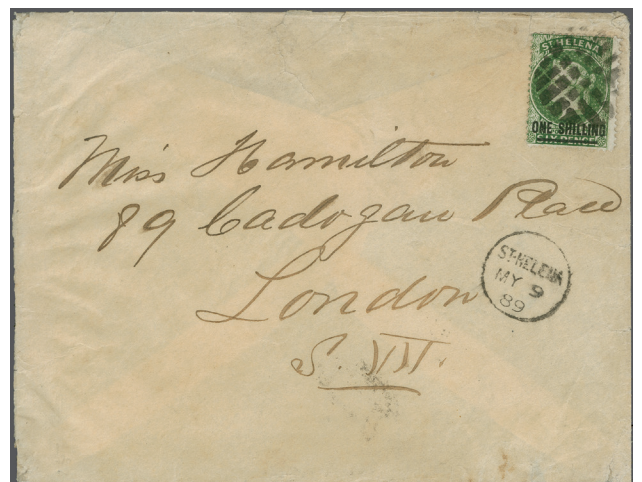 ST HELENA
ONE SHILLING
SIX PENCE
Miss Hamilton
89 Cadogan Place
London
S. W.
ST. HELENA
MY 9
89